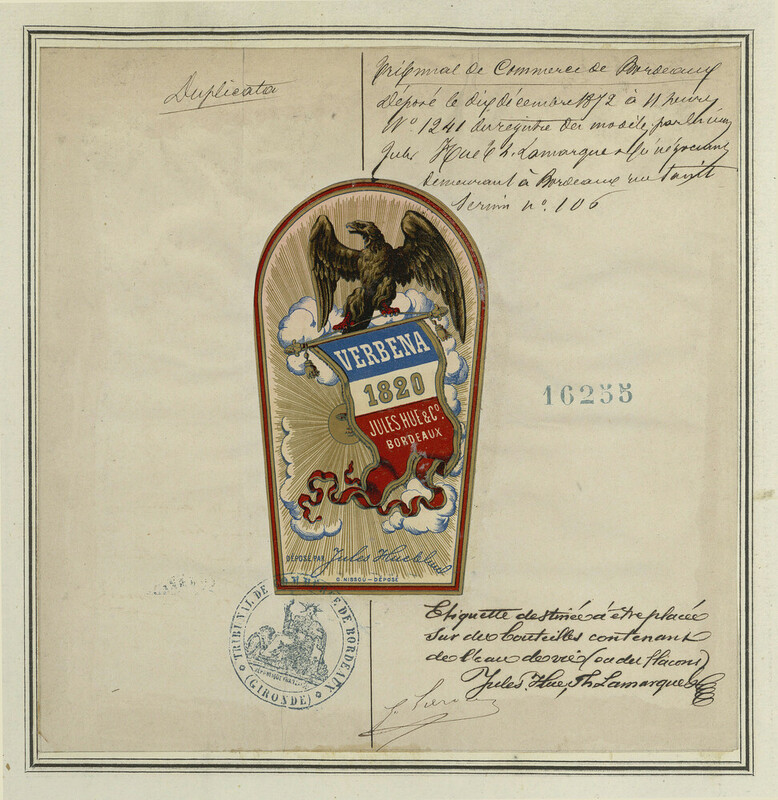 Duplicata
Tribunal de Commerce de Bordeaux
Déposé le dix décembre 1872 à 11 heures
N° 1241 du registre des modèles, par
Jules Hue & Th. Lamarque négociants
demeurant à Bordeaux rue
n° 106
VERBENA
1820
JULES HUE & Co.
BORDEAUX
16255
DÉPOSÉ PAR Jules Hue
G. NISSOU - DÉPOSÉ
TRIBUNAL DE COMMERCE DE BORDEAUX
(GIRONDE)
Etiquette destinée à être placée
sur des bouteilles contenant
de l'eau de vie (ou des flacons)
Jules Hue, Th Lamarque